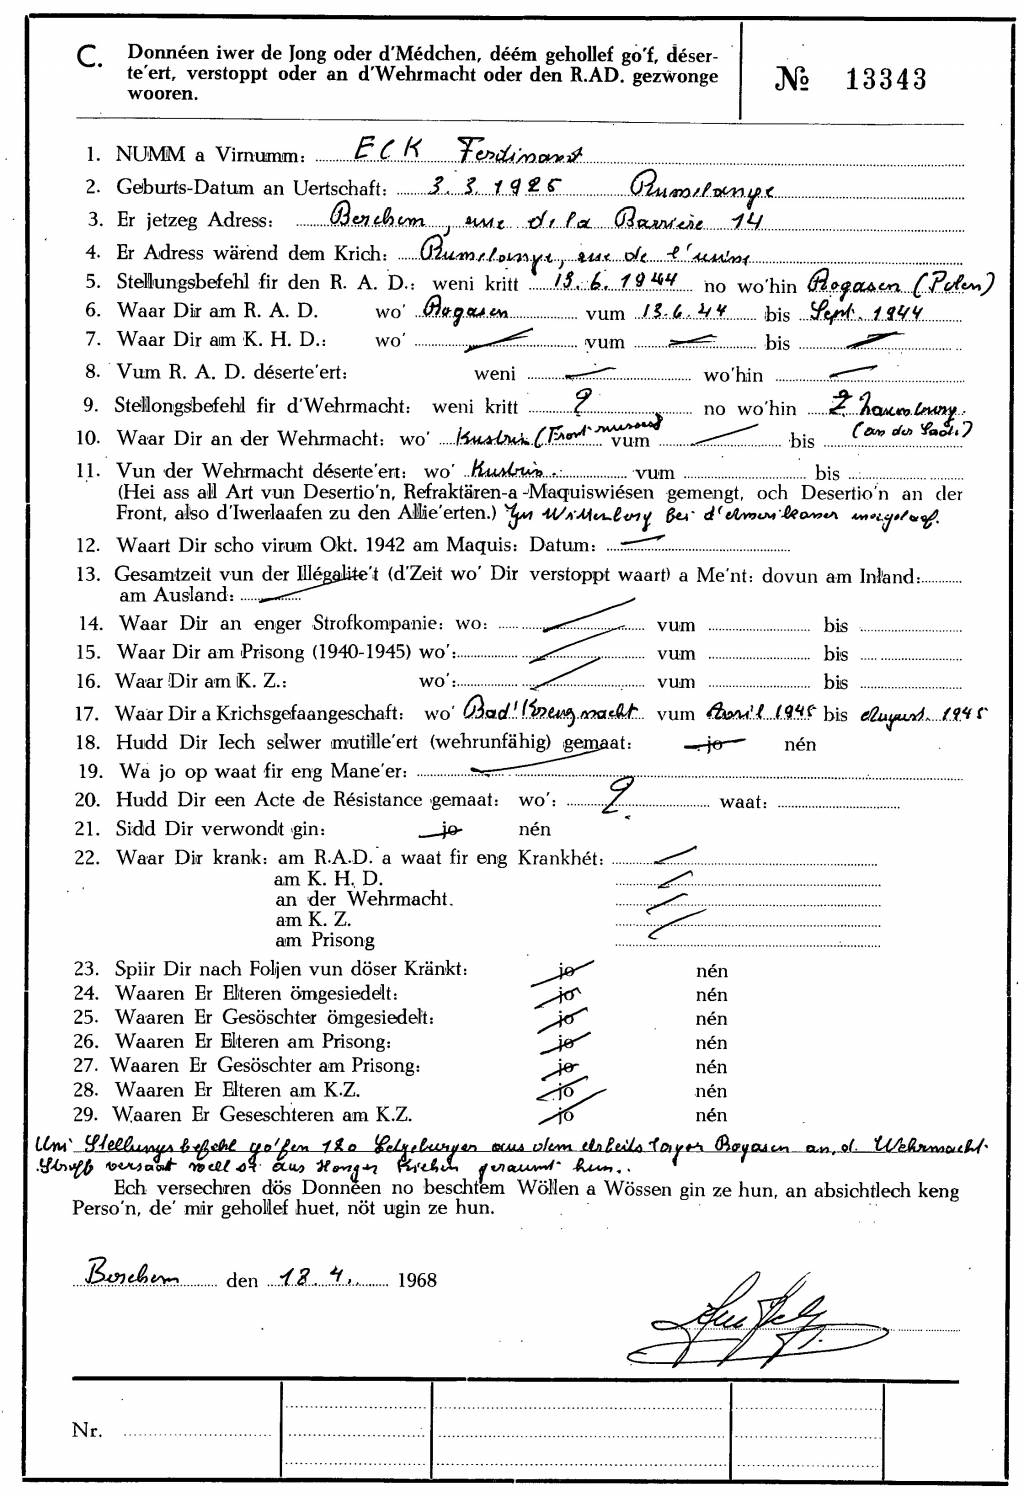 C. Donnéen iwer de Jong oder d'Médchen, déém gehollef go'f, déser-
te'ert, verstoppt oder an d'Wehrmacht oder den R.AD. gezwonge
wooren.
№ 13343
1. NUMM a Virnumm: ECK Ferdinant
2. Geburts-Datum an Uertschaft: 3. 3. 1925 Rumelange
3. Er jetzeg Adress: Berchem, rue de la Barrière 14
4. Er Adress wärend dem Krich: Rumelange, rue de l'usine
5. Stellungsbefehl fir den R. A. D.: weni kritt 13. 6. 1944 no wo'hin Rogasen (Polen)
6. Waar Dir am R. A. D. wo' Rogasen vum 13.6.44 bis Sept. 1944
7. Waar Dir am K. H. D.: wo' vum bis
8. Vum R. A. D. déserte'ert: weni wo'hin
9. Stellongsbefehl fir d'Wehrmacht: weni kritt ? no wo'hin
10. Waar Dir an der Wehrmacht: wo' Kustrin (Front vum bis
11. Vun der Wehrmacht déserte'ert: wo' Kustrin. vum bis
(Hei ass all Art vun Desertio'n, Refraktären-a-Maquiswiésen gemengt, och Desertio'n an der
Front, also d'Iwerlaafen zu den Allie'erten.) Wittenberg bei d'Amerikaner
12. Waart Dir scho virum Okt. 1942 am Maquis: Datum:
13. Gesamtzeit vun der Illégalite't (d'Zeit wo' Dir verstoppt waart) a Me'nt: dovun am Inland:
am Ausland:
14. Waar Dir an enger Strofkompanie: wo: vum bis
15. Waar Dir am Prisong (1940-1945) wo': vum bis
16. Waar Dir am K. Z.: wo': vum bis
17. Waar Dir a Krichsgefaangeschaft: wo' Bad Kreuznacht vum Avril 1945 bis August 1945
18. Hudd Dir Iech selwer mutille'ert (wehrunfähig) gemaat: jo nén
19. Wa jo op waat fir eng Mane'er:
20. Hudd Dir een Acte de Résistance gemaat: wo': ? waat:
21. Sidd Dir verwondt gin: jo nén
22. Waar Dir krank: am R.A.D. a waat fir eng Krankhét:
am K. H. D.
an der Wehrmacht.
am K. Z.
am Prisong
23. Spiir Dir nach Foljen vun döser Kränkt: jo nén
24. Waaren Er Elteren ömgesiedelt: jo nén
25. Waaren Er Gesöschter ömgesiedelt: jo nén
26. Waaren Er Elteren am Prisong: jo nén
27. Waaren Er Gesöschter am Prisong: jo nén
28. Waaren Er Elteren am K.Z. jo nén
29. Waaren Er Geseschteren am K.Z. jo nén
Stellungsbefehl go'fen 120 aus dem Arbeitslager Rogasen an. d. Wehrmacht
versaat well se aus Honger geraumt hun.
Ech versechren dös Donnéen no beschtem Wöllen a Wössen gin ze hun, an absichtlech keng
Perso'n, de' mir gehollef huet, nöt ugin ze hun.
Berchem den 18. 4. 1968
Nr.